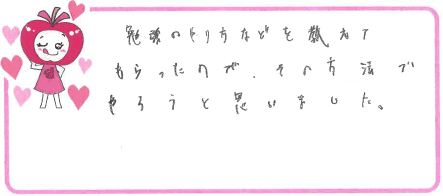 勉強のやり方などを教えて
もらったので、その方法で
やろうと思いました。